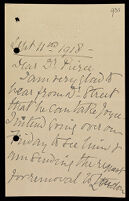 935
Sept 11th 1918 —
Dear Dr Pierce
I am very glad to
hear from Dr Street
that he can take Joyce
I intend going over on
Friday to see him &
am sending the request
for removal to London